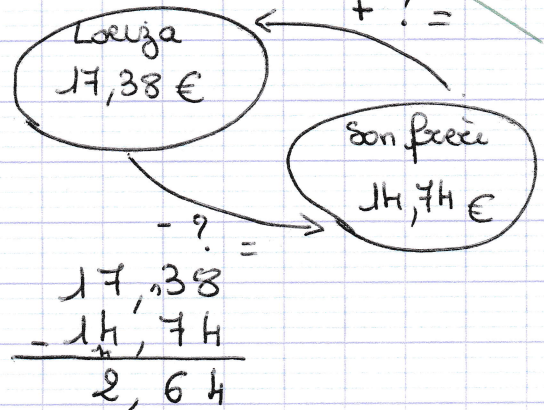 + ? =
Louiza
17,38 €
Son frère
14,74 €
- ? =
17,38
- 14,74
2,64